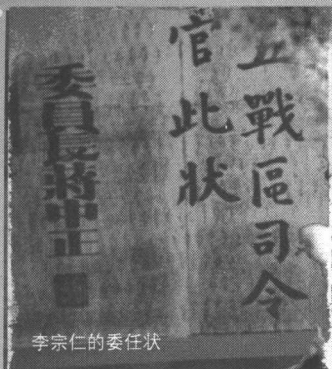 五戰區司令
官此狀
委員長蔣中正
李宗仁的委任状